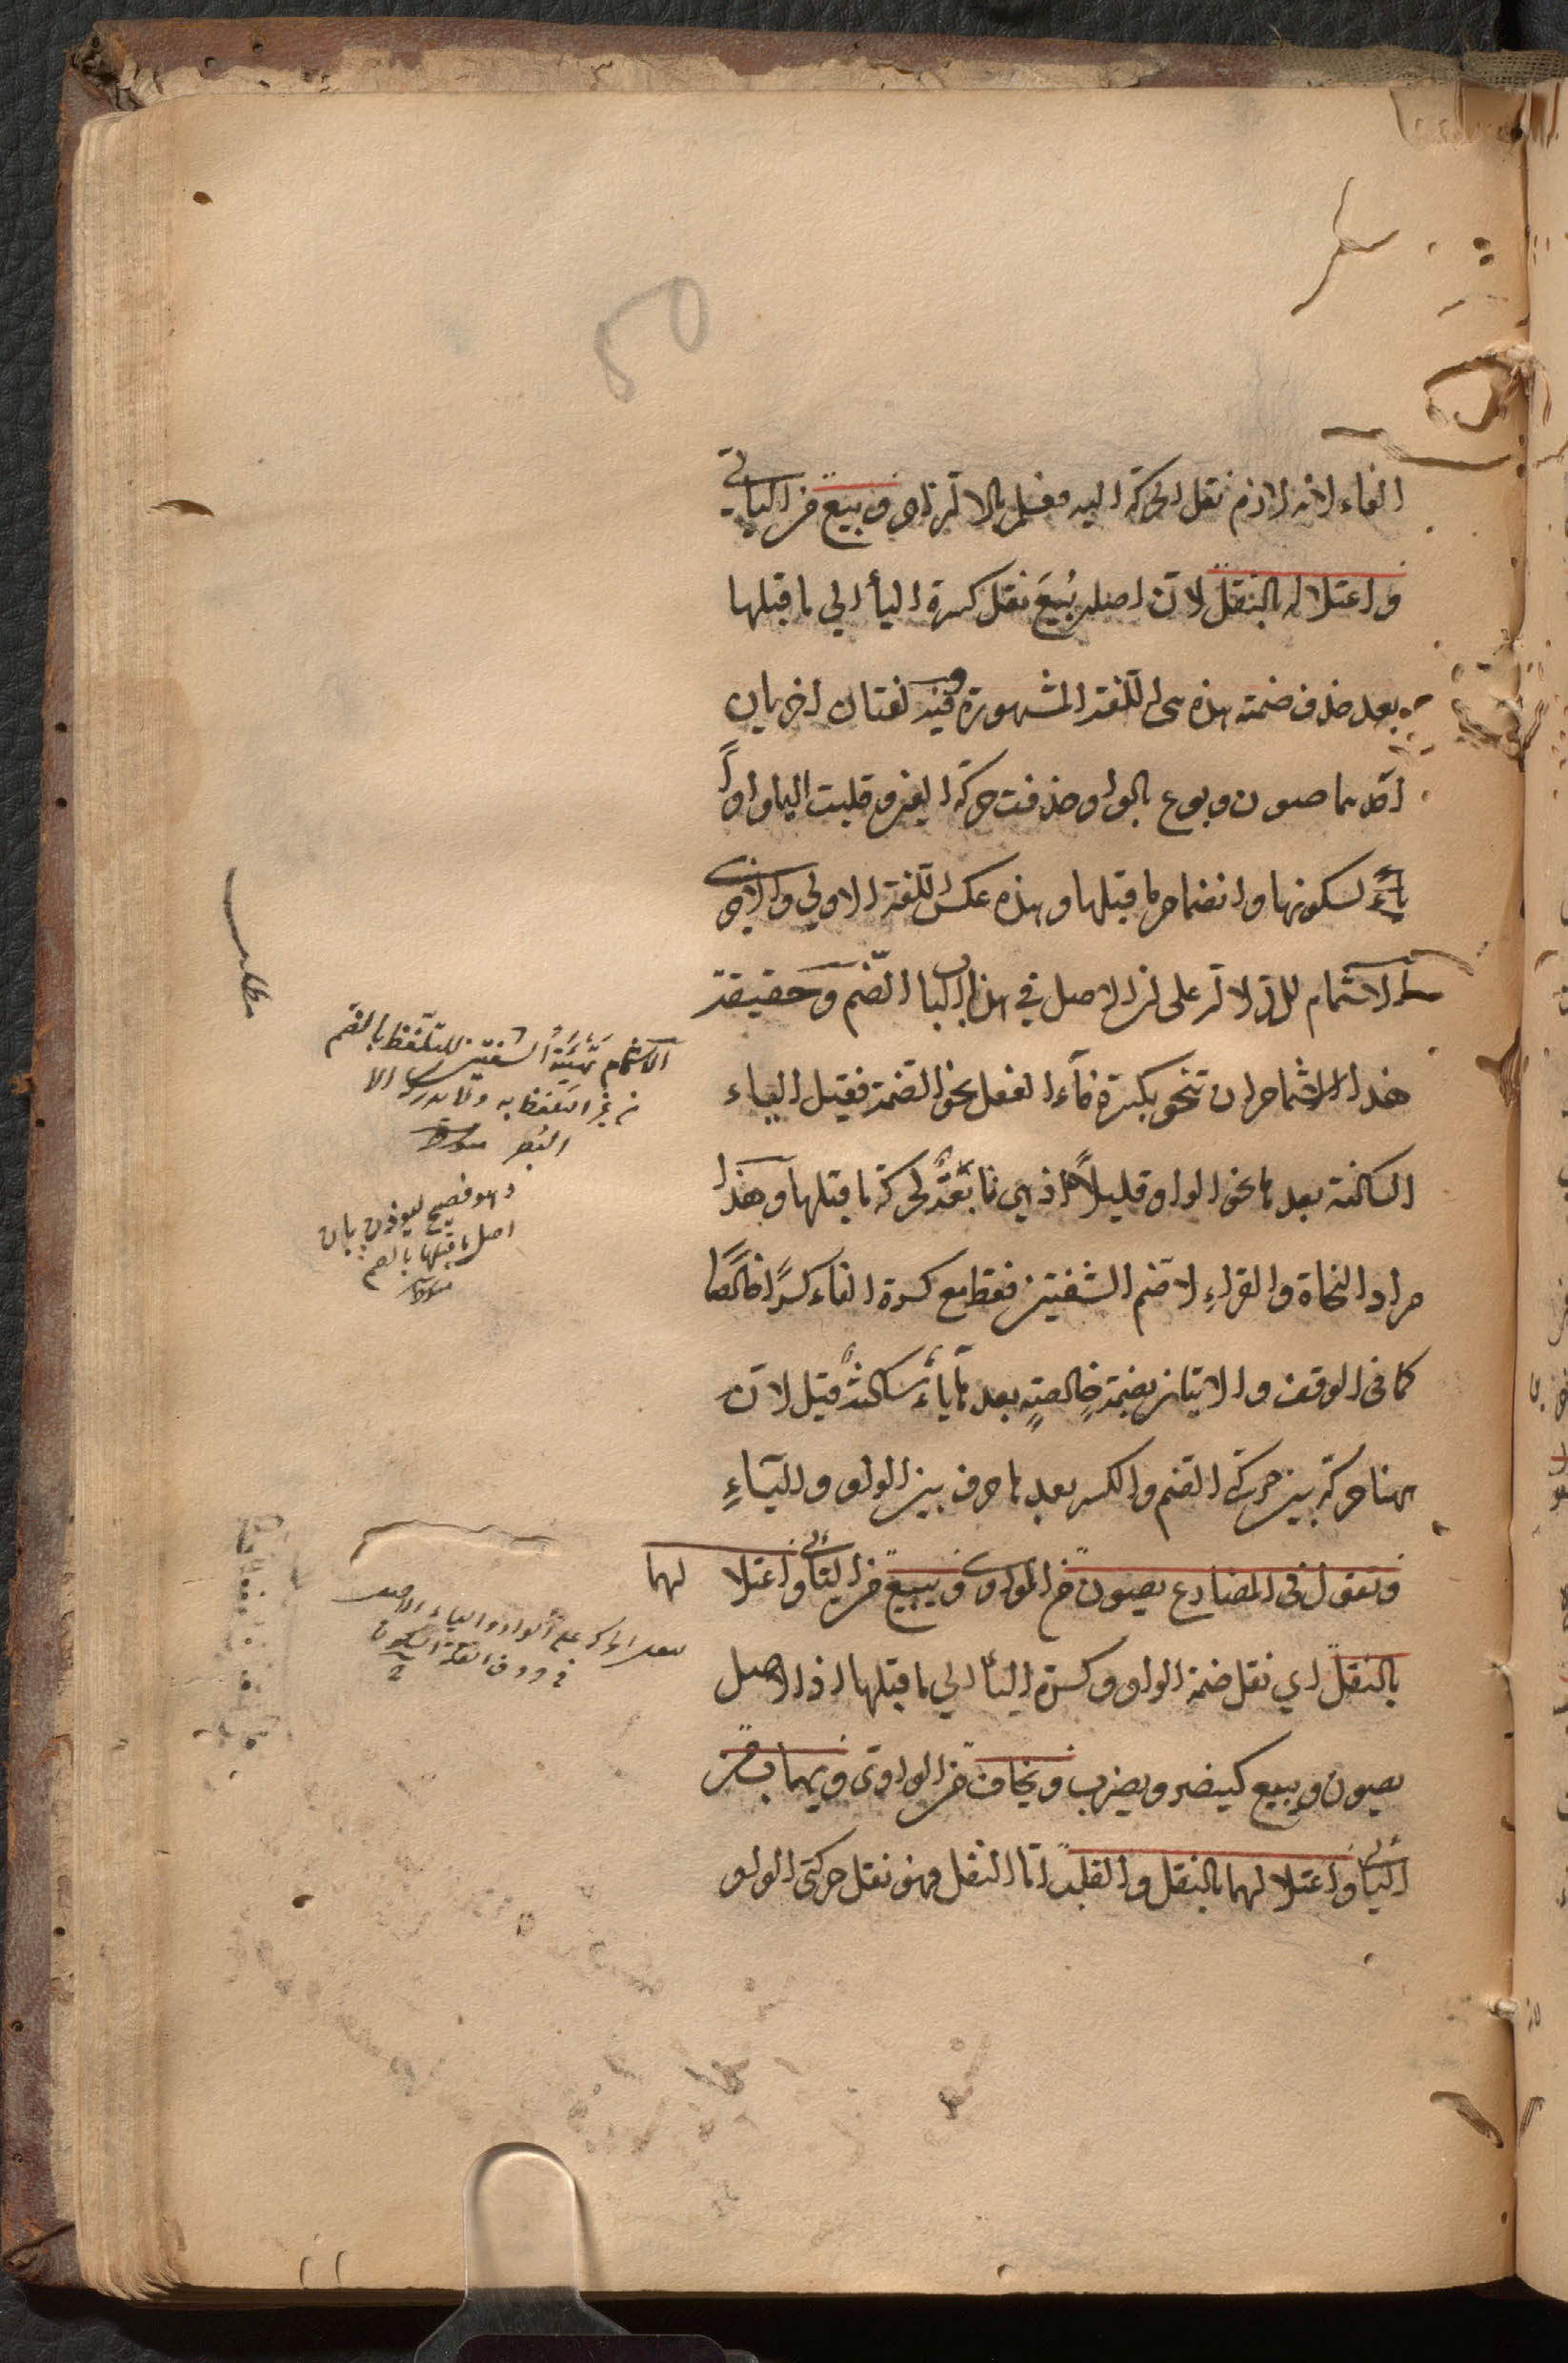 الفاء لانه لازم نقل الحركة اليه فعلم بالالتزام وبيع من اليائي
واعتلاله بالنقل لان اصله بُيِعَ نقل كسرة الياء الي ما قبلها
بعد حذف ضمته هذه هى اللغة المشهورة وفيه لغتان اخريان
احدهما صون وبوع بالواو حذفت حركة العين وقلبت الياء واواً
لسكونها وانضمام ما قبلها وهذه عكس اللغة الاولي والاخرى
الاشمام للدلالة على ان الاصل في هذا الباب الضم وحقيقة
هذا الاشمام ان تنحو بكسرة فاء الفعل نحو الضمة فتميل الياء
الساكنة بعدها نحو الواو قليلاً اذ هي تابعةٌ لحركة ما قبلها وهذا
مراد النحاة والقراءِ لا ضم الشفتين فقط مع كسرة الفاء كسرًا خالصًا
كما فى الوقف والاتيان بضمة خالصةٍ بعدها ياءٌ ساكنةٌ قيل لان
ههنا حركة بين حركتى الضم والكسر بعدها حرف بين الواو والياءِ
وتقول فى المضارع يصون من الواوى ويبيع من اليائى واعتلالهما
بالنقل اي نقل ضمة الواو وكسرة الياء الي ما قبلها اذ الاصل
يصون ويبيع كينصر ويضرب ويخاف من الواوى ويهاب من
اليائى واعتلالهما بالنقل والقلب اما النقل فهو نقل حركتى الواو
الاشمام تهيئة الشفتين للتلفظ بالضم
من غير التلفظ به ولا يدركه الا
البصر
وهو فصيح ليوذن بان
اصل ما قبلها بالضم
الواو والياء